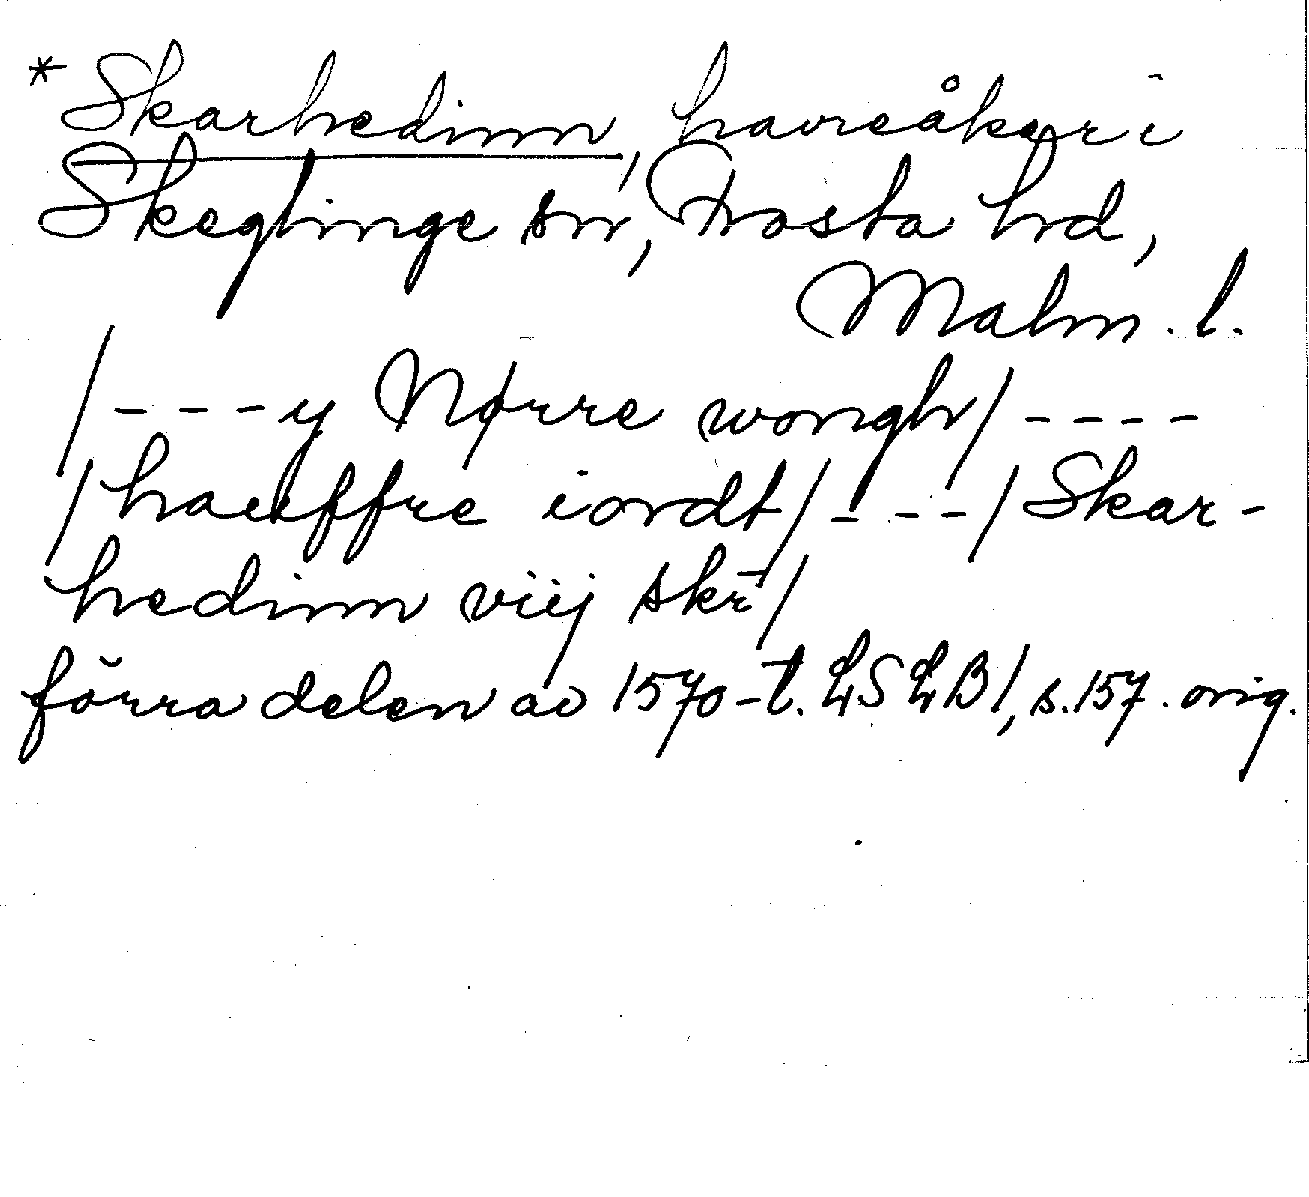 * Skarhedinn, havreåker i
Skeglinge sn, Frosta hd,
Malm. l.
/---y Nørre wongh/----
/haeffre iordt/---/Skar-
hedinn viij skr̄/
förra delen av 1570-t. LSLB1, s.157. orig.